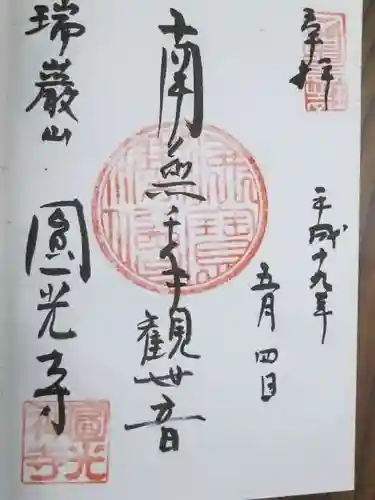 奉拝
平成十九年
五月四日
南無千手観世音
瑞巌山
圓光寺
圓光